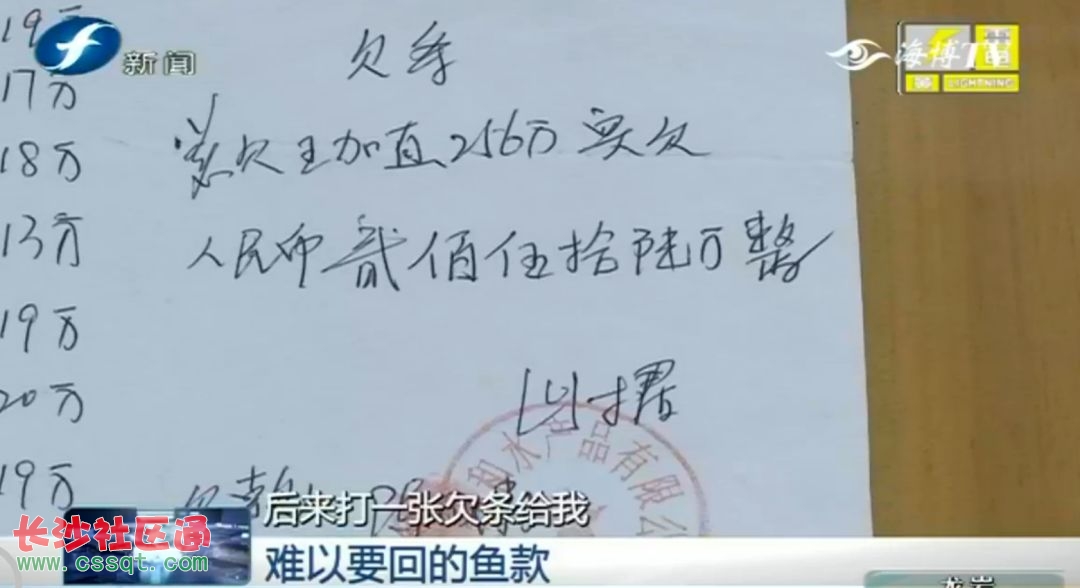 19
新闻
海博TV
LIGHTNING
17万
欠条
18万
总欠王加直256万实欠
13万
人民币贰佰伍拾陆万整
19万
以此据
20万
和水产品有限公
19万
欠款
后来打一张欠条给我
难以要回的鱼款
长沙社区通
www.cssqt.com
龙岩